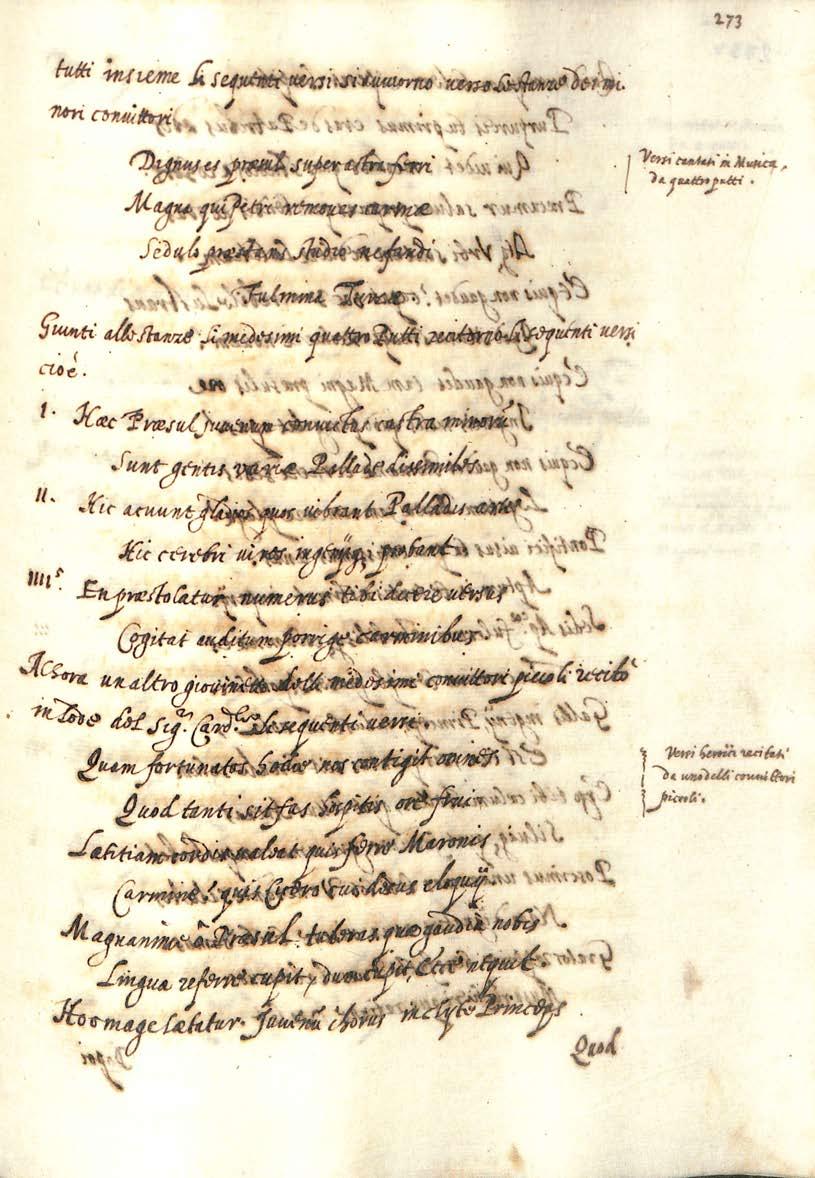 273
tutti insieme li sequenti versi si avviorno verso le stanze de mi-
nori convittori
Dignus es præsul super astra ferri
Magna qui Petri removes
Sedulo præstans studio nefandi
Fulmina Turcæ
Versi cantati in Musica,
da quattro putti.
Giunti alle stanze li medesimi quattro Putti recitorno li sequenti versi
cioé.
I. Hæc Præsul juvenum convictus castra minorũ
Sunt gentis variæ Pallade dissimiles
II. Hic acuunt gladios quos vibrant Palladis artes
Hic cerebri vires ingenijq; probant
IIII. En præstolatur numerus tibi dicere versus
Cogitat auditum porrige carminibus
Alhora un altro giovinetto delli medesimi convittori piccoli recitò
in lode del Sig.r Card.le li sequenti versi
Quam fortunatos hodie nos contigit omnes
Quod tanti sit fas hospitis ore frui
Lætitiam cordis valeat quis ferre Maronis
Carmine? quis Cicero eloquij
Magnanime ô Præsul quæ gaudia nobis
Lingua referre cupit, dum cupit, Ecce nequit
Hoc mage lætatur Juvenũ chorus inclyte Princeps
Versi heroici recitati
da uno delli convittori
piccoli.
Quod